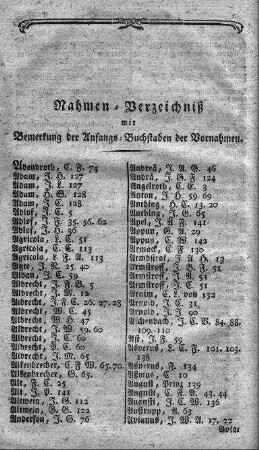 Nahmen-Verzeichniß
mit
Bemerkung der Anfangs-Buchstaben der Vornahmen.
Abendroth, C. F. 74
Adam, J. H. 127
Adam, J. L. 127
Adam, H. G. 128
Adam, J. C. 128
Adlof, J. 5
Adlof, J. F. 35. 56. 62
Adlof, J. H. 36
Agricola, L. C. 51
Agricola, C. E. 113
Agricola, L. F. A. 113
Agte, J. N. 25. 40
Alban, J. C. 59
Albrecht, J. F. B. 5
Albrecht, J. M. 5
Albrecht, J. F. C. 26. 27. 28
Albrecht, W. C. 45
Albrecht, W. D. 47
Albrecht, J. W. 59. 60
Albrecht, J. C. 60
Albrecht, P. C. 60
Albrecht, J. M. 65
Alkenbrecher, C. F W. 65. 70.
Alkenbrecher, G. 65.
Alt, F. C. 25
Alt, J. P. 141
Altwein, J. G. 112
Altwein, G. G. 122
Anderson, J. G. 76
Andreä, J. A. G. 46
Andrä, J. G. F. 124
Angelroth, C. E. 3
Anton, J. H. 59. 69
Anthing, H. C. 13. 20
Anthing, J. G. 65
Apel, J. A. 41
Appun, G. A. 29
Appun, C. W. 142
Arnack, C. F. 130
Armstroff, J. A H. 13
Armstroff, J. G. F. 51
Armstroff, J. G. 51
Armstroff, J. C. 51
Arnim, C. L. von 132
Arnold, J. C. 31
Arnold, J. J. 90
Aschenbach, J. C. V. 84. 88.
109. 110
Ast, J. F. 59
Asverus, L. C. F. 101. 103.
138
Asverus, F. 134
Aßmus, C. 10
August, Prinz 139
August, C. F. A. 43. 44
Austrupp, A. 63
Avianus, J. W. A. 17. 22